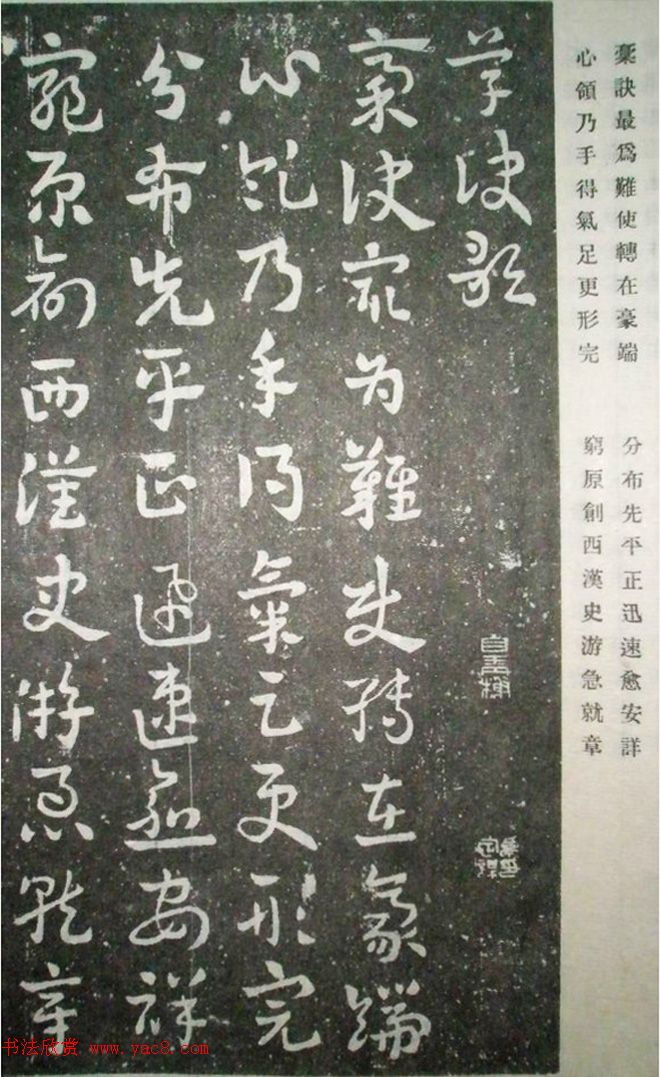 豪訣最爲難使轉在豪端
心領乃手得氣足更形完
分布先平正迅速愈安詳
窮原創西漢史游急就章
草訣歌
稾訣最为難使轉在豪端
心領乃手得氣足更形完
分布先平正迅速愈安祥
窮原創西漢史游急就章
书法欣赏 www.yac8.com